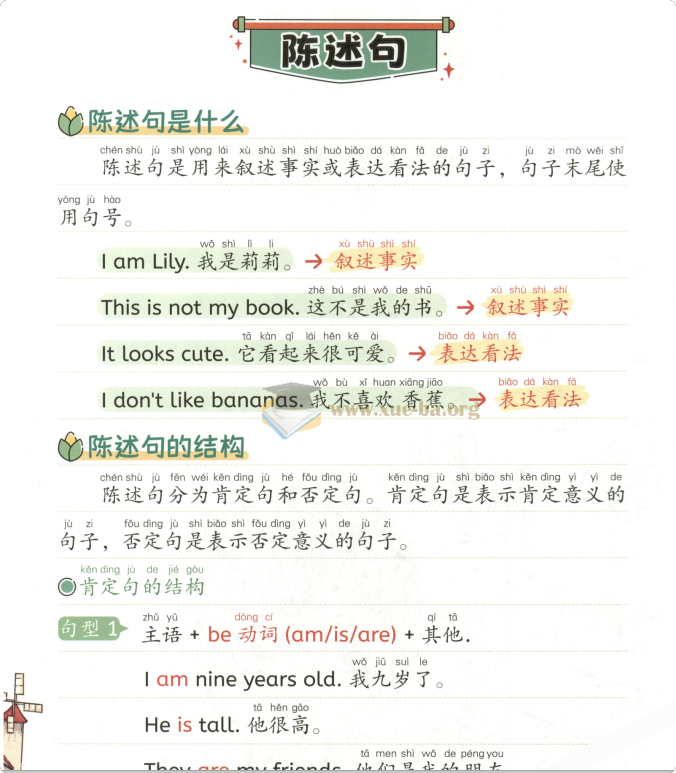 陈述句
陈述句是什么
chén shù jù shì yòng lái xù shù shì shí huò biǎo dá kàn fǎ de jù zi jù zi mò wěi shǐ
陈述句是用来叙述事实或表达看法的句子，句子末尾使
yòng jù hào
用句号。
wǒ shì lì li xù shù shì shí
I am Lily. 我是莉莉。 → 叙述事实
zhè bú shì wǒ de shū xù shù shì shí
This is not my book. 这不是我的书。 → 叙述事实
tā kàn qǐ lái hěn kě ài biǎo dá kàn fǎ
It looks cute. 它看起来很可爱。 → 表达看法
wǒ bù xǐ huan xiāng jiāo biǎo dá kàn fǎ
I don't like bananas. 我不喜欢香蕉。 → 表达看法
www.xue-ba.org
陈述句的结构
chén shù jù fēn wéi kěn dìng jù hé fǒu dìng jù kěn dìng jù shì biǎo shì kěn dìng yì yì de
陈述句分为肯定句和否定句。肯定句是表示肯定意义的
jù zi fǒu dìng jù shì biǎo shì fǒu dìng yì yì de jù zi
句子，否定句是表示否定意义的句子。
kěn dìng jù de jié gòu
肯定句的结构
zhǔ yǔ dòng cí qí tā
句型 1 主语 + be 动词 (am/is/are) + 其他.
wǒ jiǔ suì le
I am nine years old. 我九岁了。
tā hěn gāo
He is tall. 他很高。
tā men shì wǒ de péng you
They are my friends. 他们是我的朋友